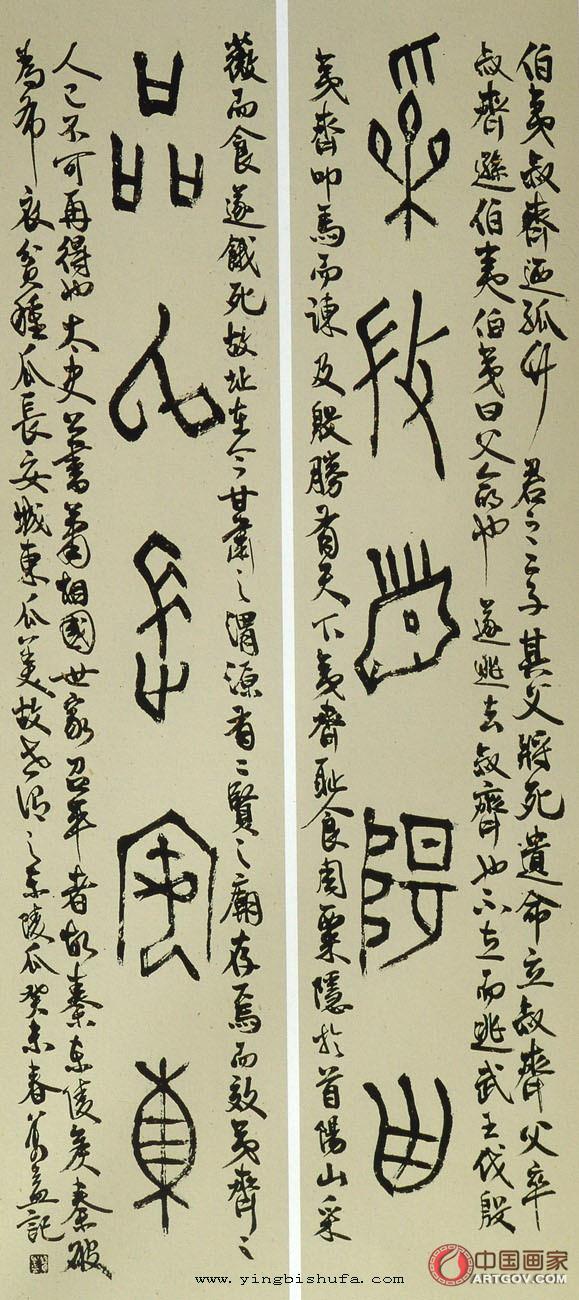 伯夷叔齊迺孤竹君之二子其父將死遺命立叔齊父卒
叔齊遜伯夷伯夷曰父命也遂逃去叔齊也不立而逃武王伐殷
采薇首陽曲
夷齊叩馬而諫及殷勝有天下夷齊恥食周粟隱於首陽山采
薇而食遂餓死故址在今甘肅之渭源有二賢之廟存焉而效夷齊之
品瓜長安東
人已不可再得也太史公書蕭相國世家召平者故秦東陵侯秦破
為布衣貧種瓜長安城東瓜美故世謂之東陵瓜癸未春 記
www.yingbishufa.com
中国画家
ARTGOV.COM